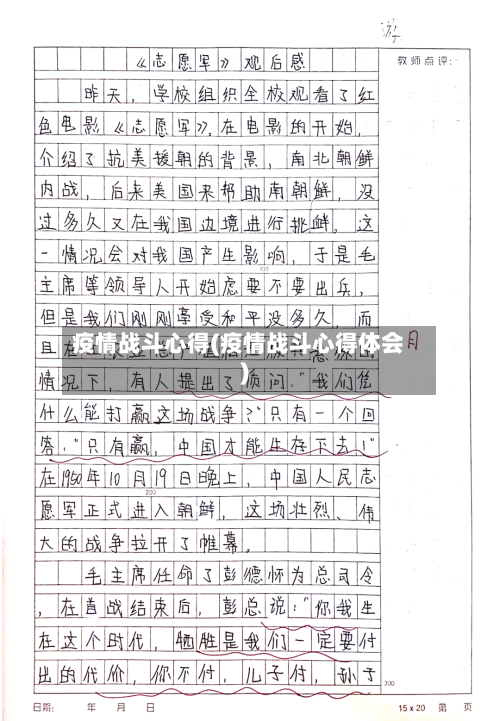 游
教师点评:
《志愿军》观后感
昨天,学校组织全校观看了红
色电影《志愿军》,在电影的开始,
介绍了抗美援朝的背景,南北朝鲜
内战,后来美国来帮助南朝鲜,没
过多久又在我国边境进行挑衅。这
一情况会对我国产生影响,于是毛
100
主席等领导人开始虑要不要出兵,
但是我们刚刚享受和平没多久,而
且在
疫情战斗心得(疫情战斗心得体会
)
情况下,有人提出了质问:“我们凭
什么能打赢这场战争?”只有一个回
答:“只有赢,中国才能生存下去!”
在1950年10月19日晚上,中国人民志
200
愿军正式进入朝鲜,这场壮烈、伟
大的战争拉开了帷幕。
毛主席任命了彭德怀为总司令
,在首战结束后,彭总说:“你我生
在这个时代,牺牲是我们一定要付
出的代价,你不付,儿子付,孙子
300
日期: 年 月 日
15 x 20 第 页